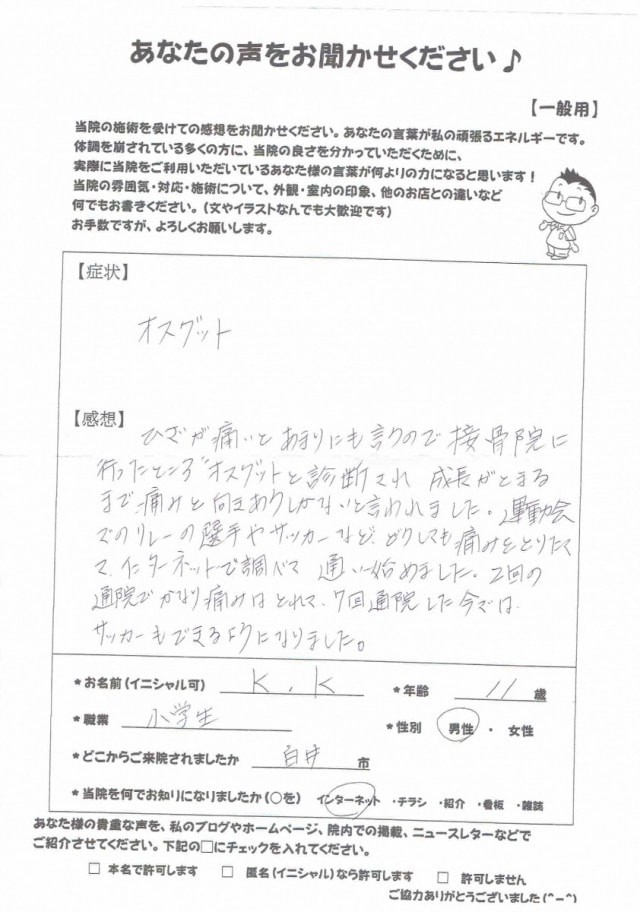 あなたの声をお聞かせください♪
【一般用】
当院の施術を受けての感想をお聞かせください。あなたの言葉が私の頑張るエネルギーです。
体調を崩されている多くの方に、当院の良さを分かっていただくために、
実際に当院をご利用いただいているあなた様の言葉が何よりの力になると思います！
当院の雰囲気・対応・施術について、外観・室内の印象、他のお店との違いなど
何でもお書きください。（文やイラストなんでも大歓迎です）
お手数ですが、よろしくお願いします。
【症状】
オスグット
【感想】
ひざが痛いとあまりにも言うので接骨院に
行ったところ"オスグットと診断され 成長がとまる
まで痛みと向きあうしかないと言われました。運動会
でのリレーの選手やサッカーなど、どうしても痛みをとりたく
て、インターネットで調べて 通い始めました。2回の
通院でかなり痛みはとれて、7回通院した今では、
サッカーもできるようになりました。
＊お名前（イニシャル可） K.K ＊年齢 11 歳
＊職業 小学生 ＊性別 男性 ・ 女性
＊どこからご来院されましたか 白井 市
＊当院を何でお知りになりましたか（○を） インターネット ・チラシ ・紹介 ・看板 ・雑誌
あなた様の貴重な声を、私のブログやホームページ、院内での掲載、ニュースレターなどで
ご紹介させてください。下記の□にチェックを入れてください。
□ 本名で許可します □ 匿名（イニシャル）なら許可します □ 許可しません
ご協力ありがとうございました(^-^)